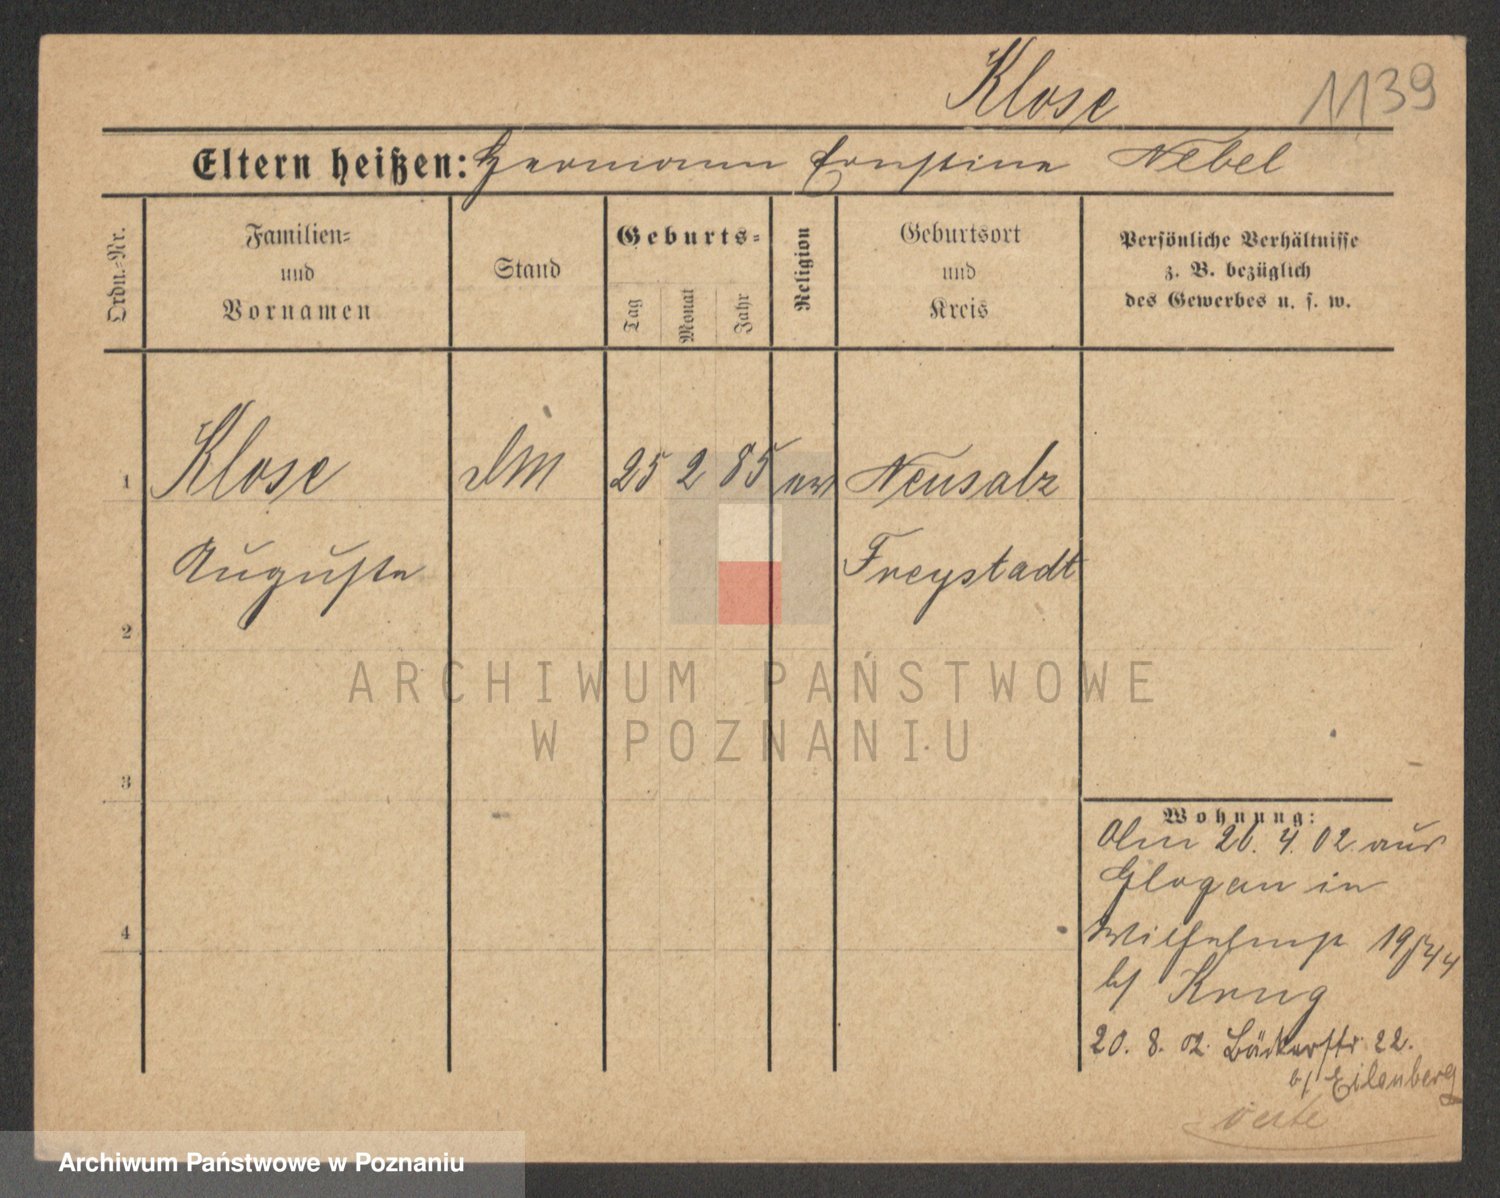 Klose
1139
Eltern heißen: Hermann Ernstine Nebel
Ordn.-Nr.
Familien-
und
Vornamen
Stand
Geburts-
Tag
Monat
Jahr
Religion
Geburtsort
und
Kreis
Persönliche Verhältnisse
z. B. bezüglich
des Gewerbes u. s. w.
1 Klose DM 25 2 85 ev Neusalz
Auguste Freystadt
2
3
4
ARCHIWUM PAŃSTWOWE
W POZNANIU
Wohnung:
4. 02. aus
Glogau in
Wilhelmst 19
b/ Krug
20. 8. 02. Bäckerstr. 22.
b/ Eilenberg
Archiwum Państwowe w Poznaniu